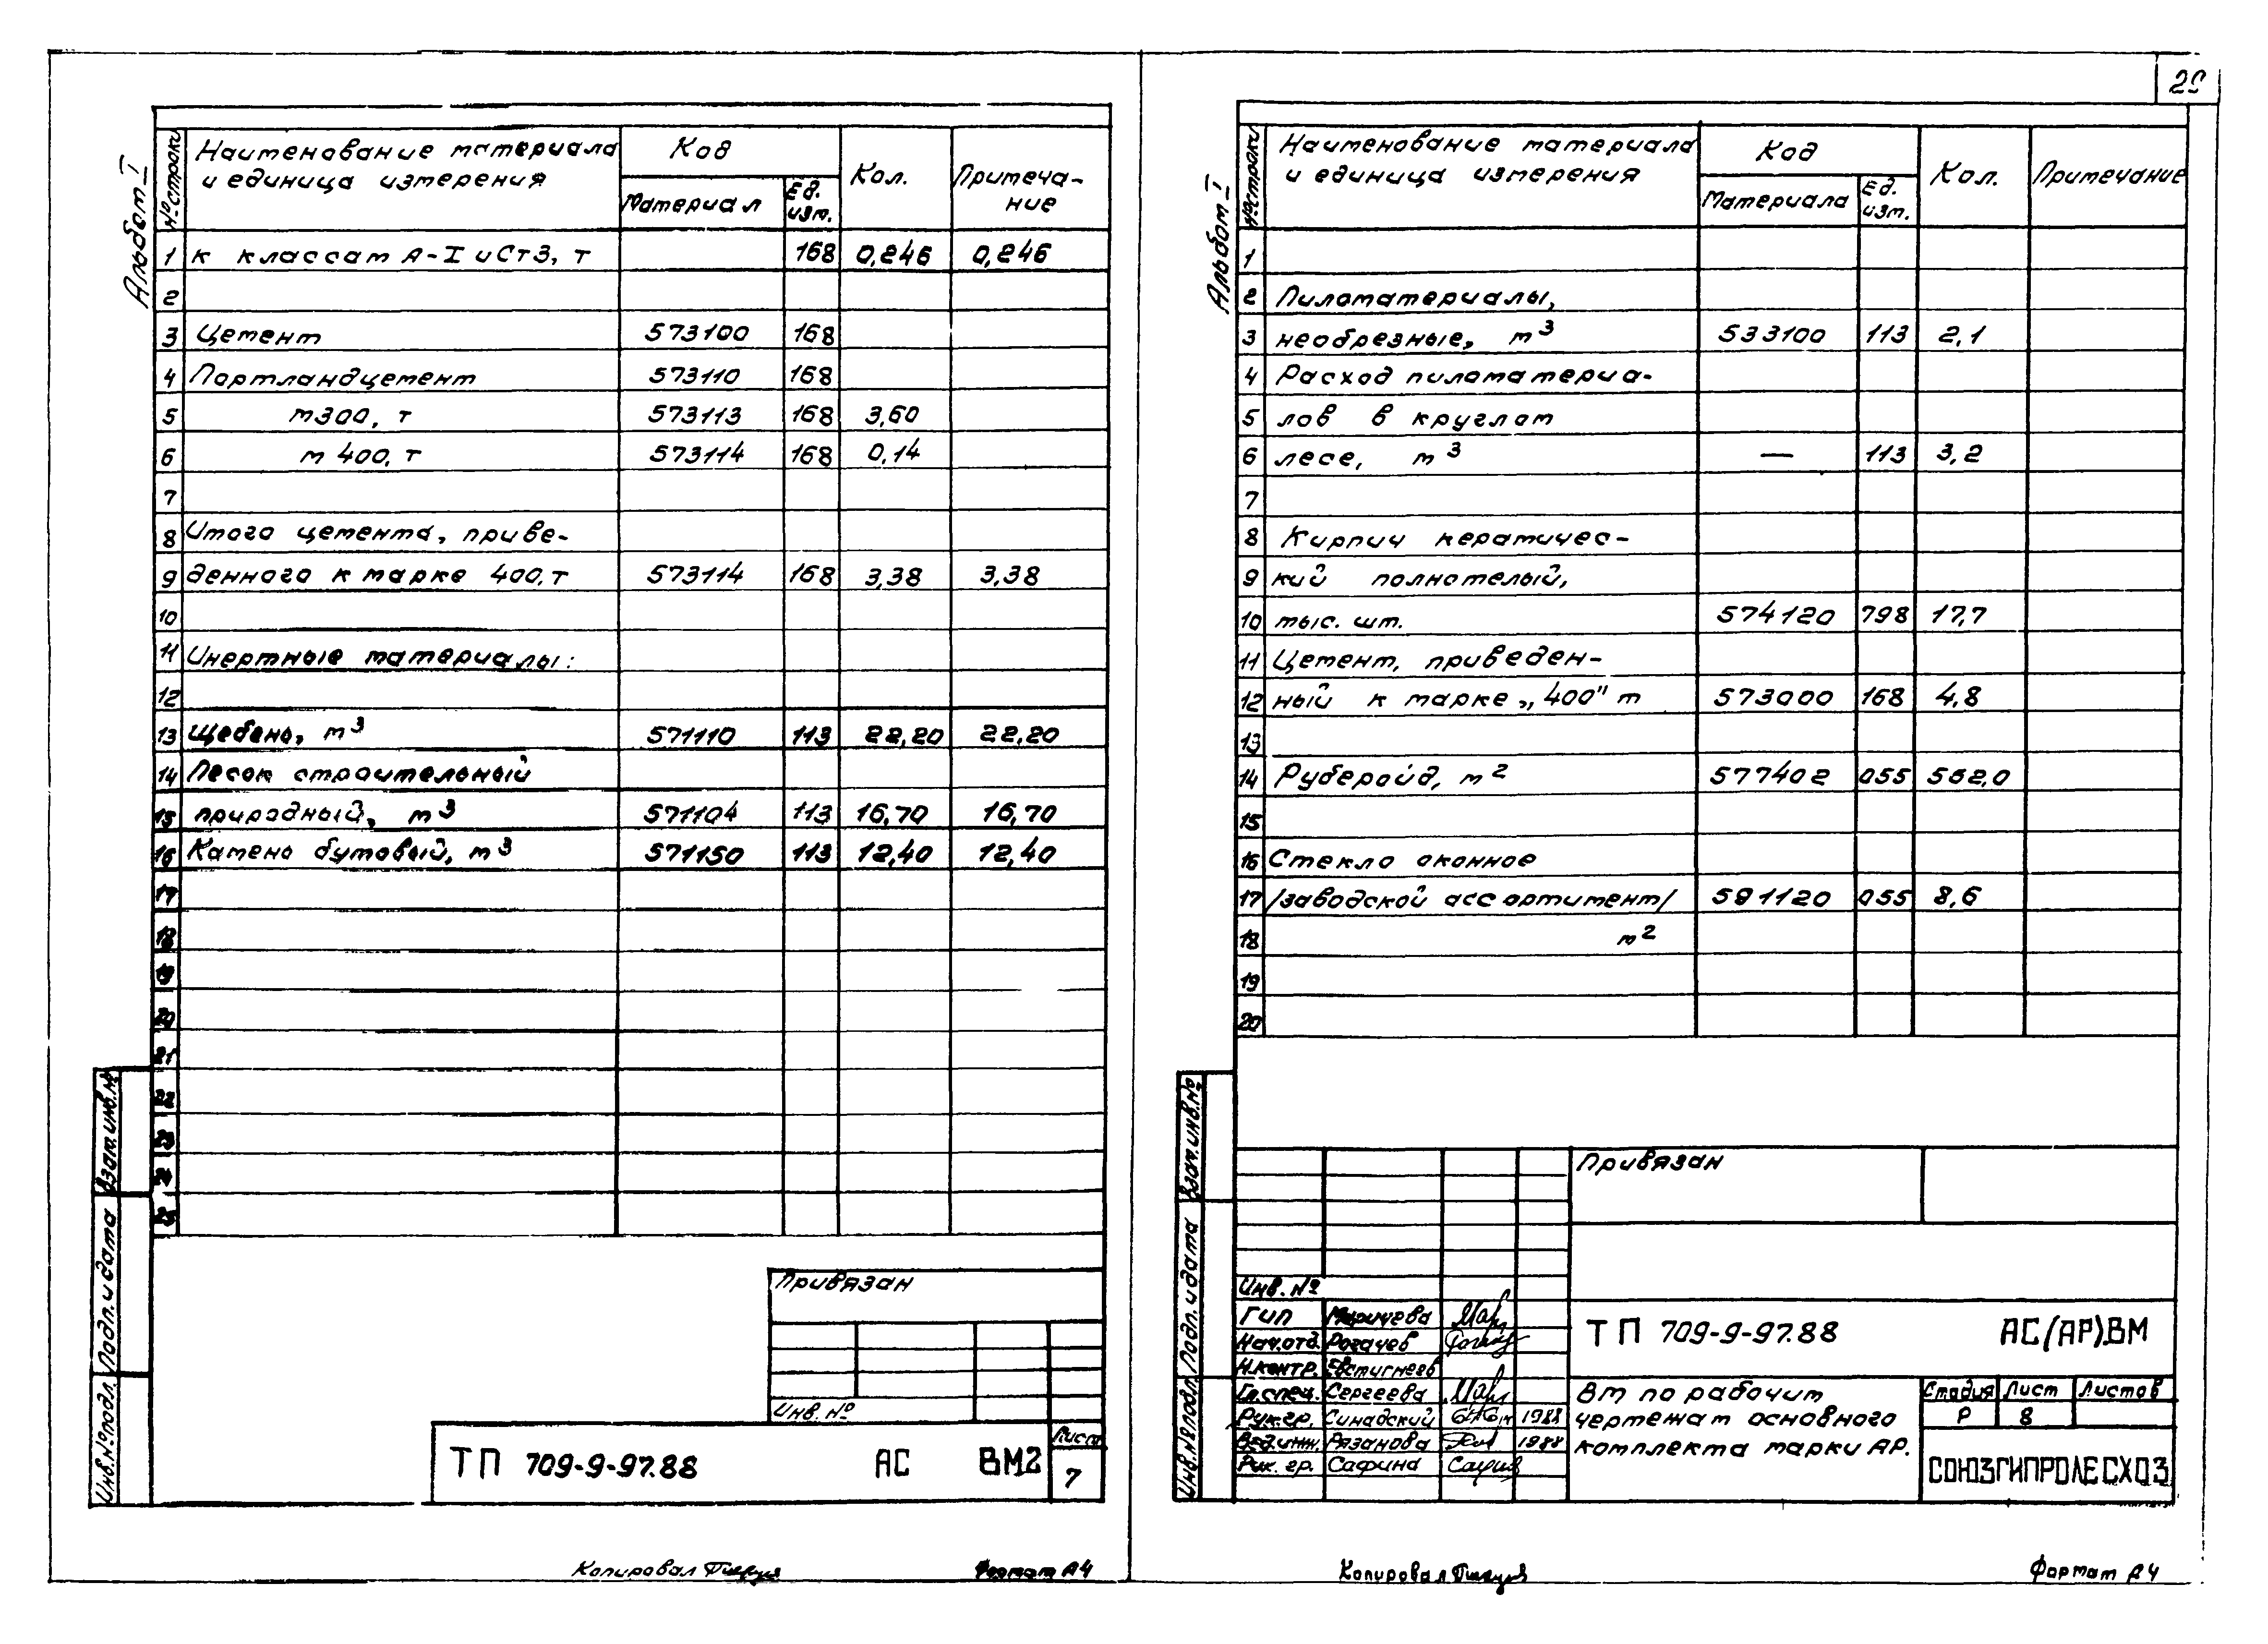 Альбом I
№ строки
Наименование материала и единица измерения
Код
Материал
Ед. изм.
Кол.
Примеча-ние
1 к классам А-I и Ст3, т 168 0,246 0,246
2
3 Цемент 573100 168
4 Портландцемент 573110 168
5 м300, т 573113 168 3,60
6 м 400, т 573114 168 0,14
7
8 Итого цемента, приве-
9 денного к марке 400, т 573114 168 3,38 3,38
10
11 Инертные материалы:
12
13 Щебень, м³ 571110 113 22,20 22,20
14 Песок строительный
15 природный, м³ 571104 113 16,70 16,70
16 Камень бутовый, м³ 571150 113 12,40 12,40
17
18
19
20
21
22
23
24
25
Взам. инв. №
Подп. и дата
Инв. № подл.
Привязан
Инв. №
ТП 709-9-97.88 АС ВМ2
Лист
7
Копировал
Формат А4
Альбом I
№ строки
Наименование материала и единица измерения
Код
Материала
Ед. изм.
Кол.
Примечание
1
2 Пиломатериалы,
3 необрезные, м³ 533100 113 2,1
4 Расход пиломатериа-
5 лов в круглом
6 лесе, м³ — 113 3,2
7
8 Кирпич керамичес-
9 кий полнотелый,
10 тыс. шт. 574120 798 17,7
11 Цемент, приведен-
12 ный к марке „400" т 573000 168 4,8
13
14 Рубероид, м² 577402 055 562,0
15
16 Стекло оконное
17 /заводской ассортимент/ 591120 055 8,6
18 м²
19
20
Взам. инв. №
Подп. и дата
Инв. № подл.
Привязан
Инв. №
ГИП
Нач. отд. Рогачев
Н. контр. Евстигнеев
Гл. спец. Сергеева
Рук. гр. Синадский 1988
Вед. инж. Рязанова 1988
Рук. гр. Сафина
ТП 709-9-97.88 АС(АР).ВМ
ВМ по рабочим
чертежам основного
комплекта марки АР.
Стадия Лист Листов
Р 8
СОЮЗГИПРОЛЕСХОЗ
Копировал
Формат А4